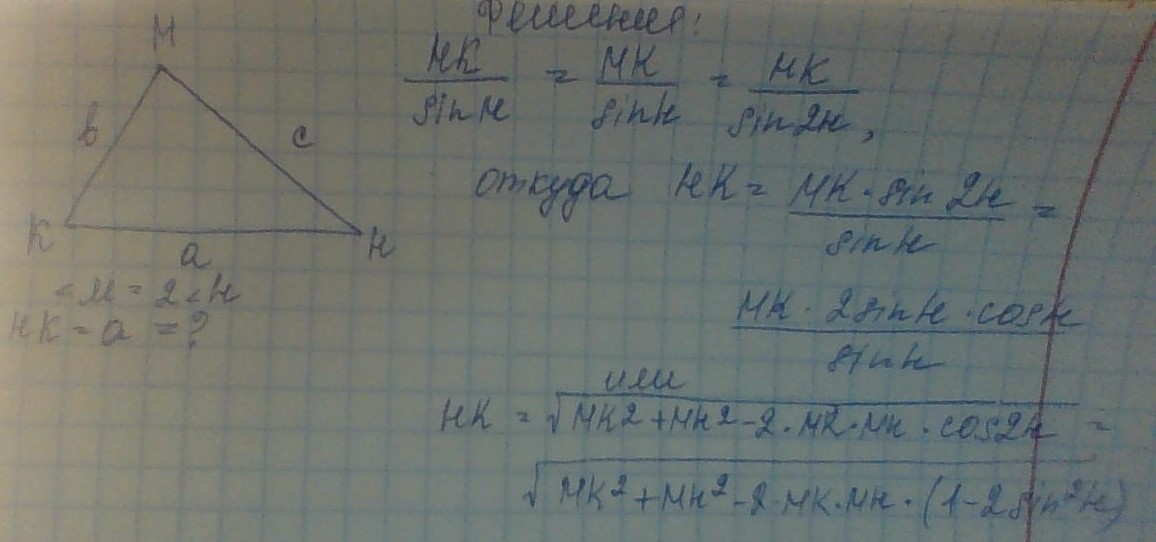 Решения:
M
b
c
K
a
H
<M = 2<H
HK = a = ?
HK/sinM = MK/sinH = HK/sin2H,
откуда HK = MK·sin 2H/sinH =
MK · 2sinH · cosH/sinH
или
HK = √MK2 + MH2 - 2·MK·MH·cos2H =
√MK2 + MH2 - 2·MK·MH·(1-2sin2H)